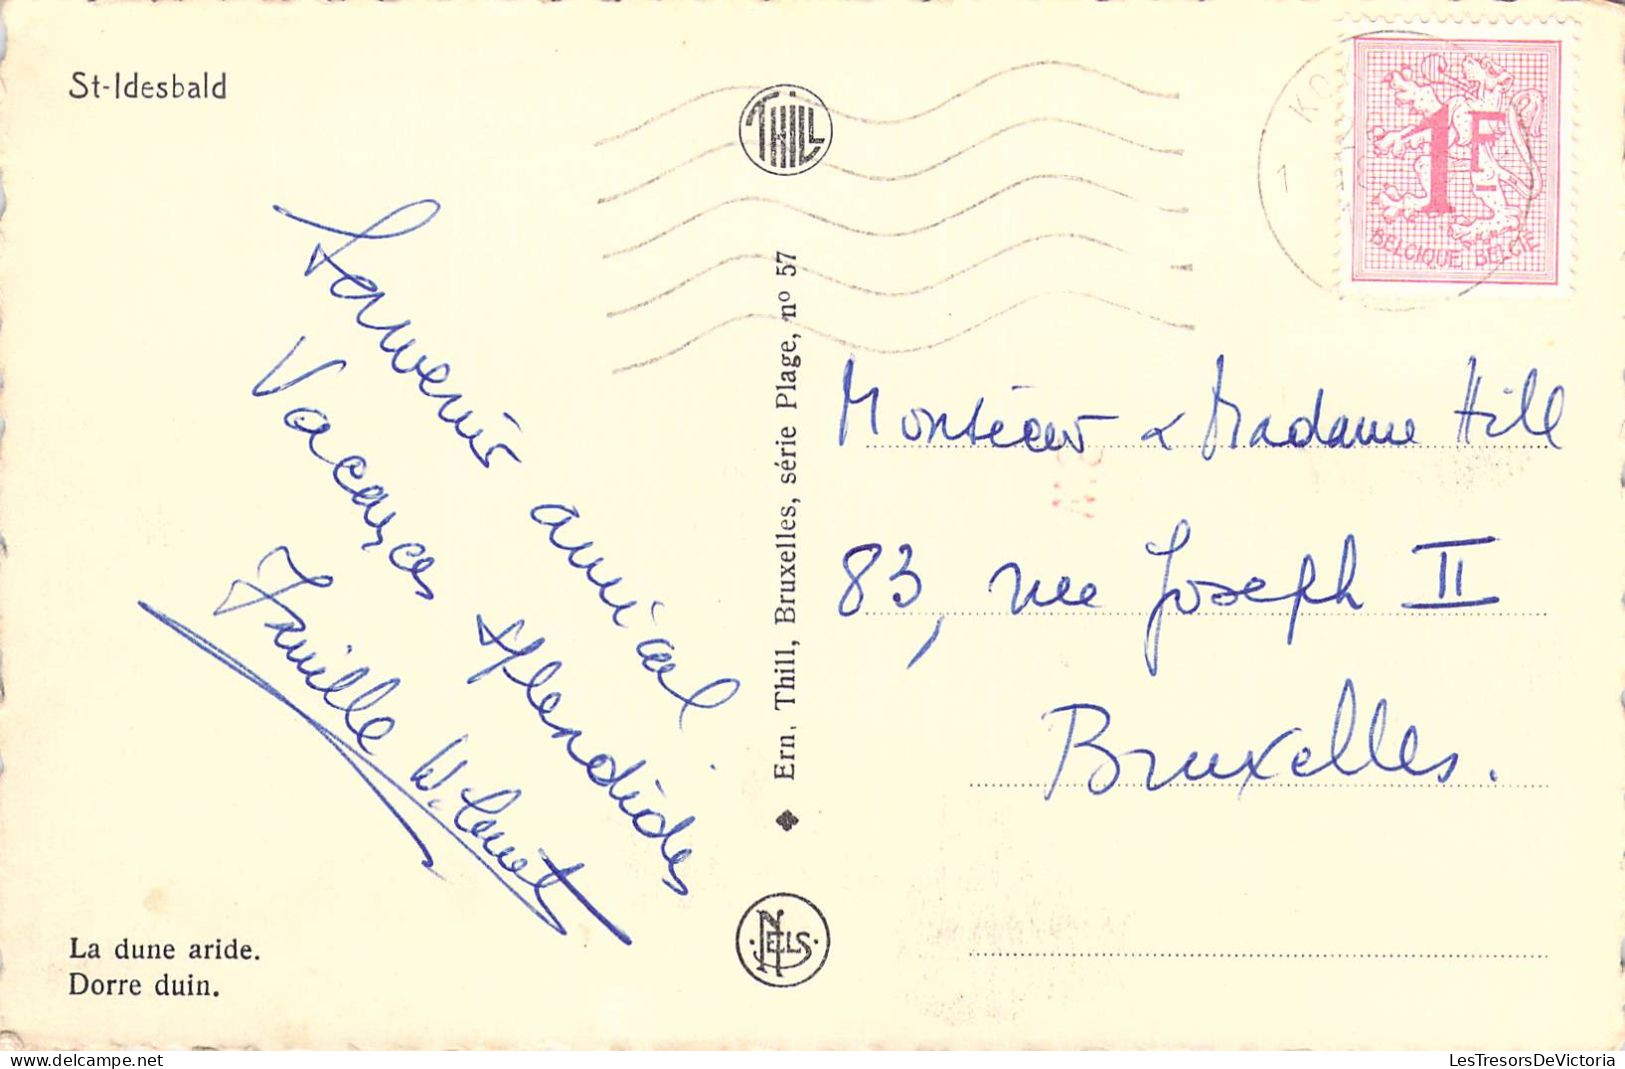 St-Idesbald
THILL
1F
BELGIQUE BELGIË
Souvenir amical
Vacances splendides
Famille W.
Ern. Thill, Bruxelles, série Plage, nº 57
NELS
Monsieur & Madame Hill
83, rue Joseph II
Bruxelles.
La dune aride.
Dorre duin.
www.delcampe.net
LesTresorsDeVictoria